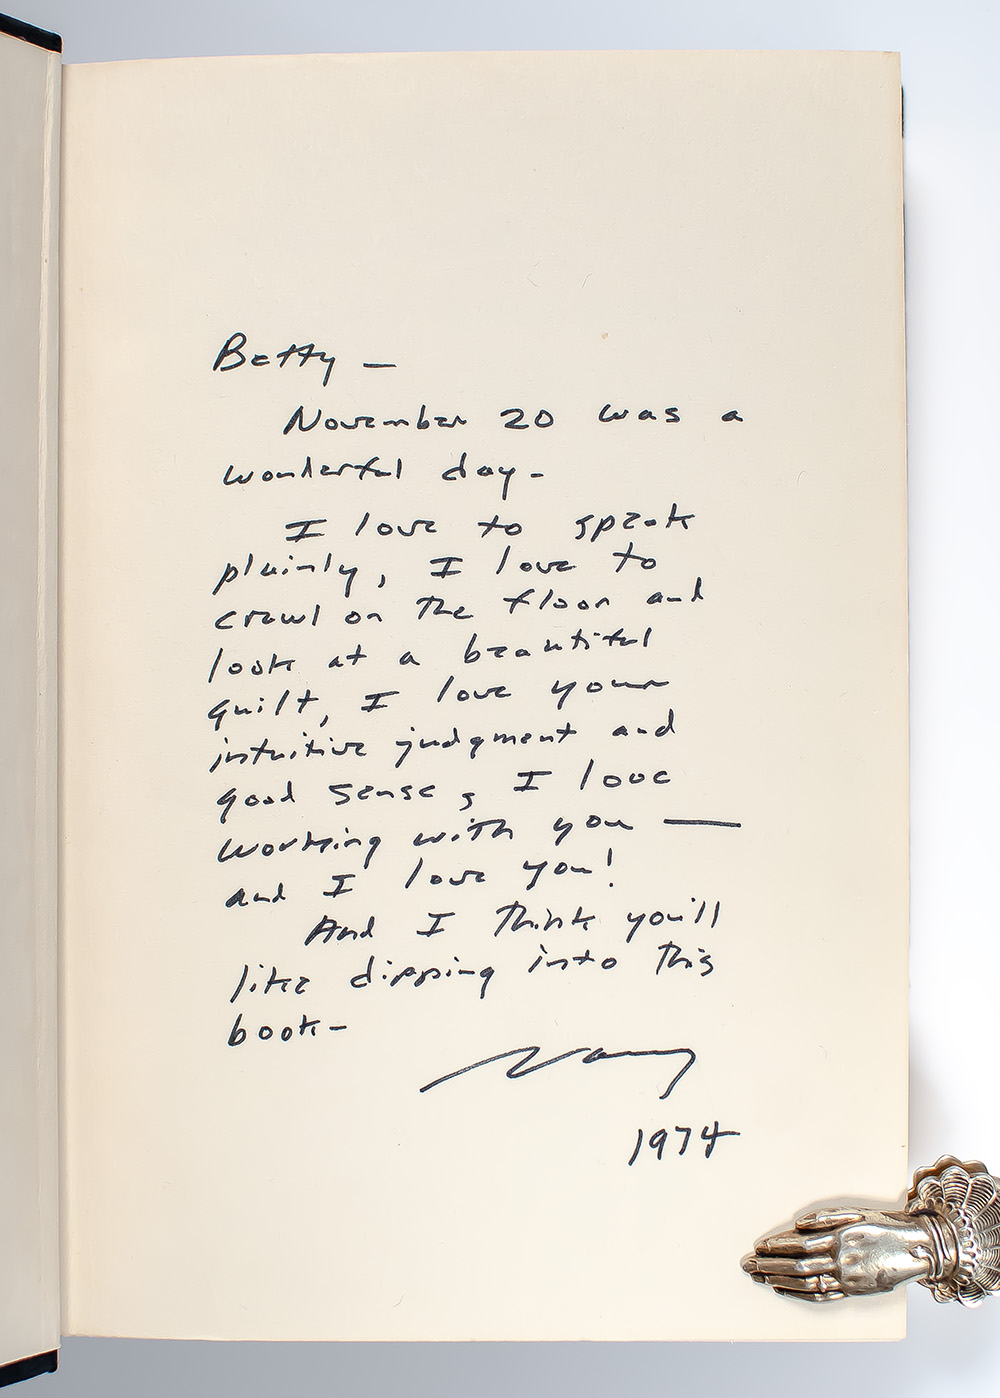 Betty —
November 20 was a
wonderful day-
I love to speak
plainly, I love to
crawl on the floor and
look at a beautiful
quilt, I love your
intuitive judgment and
good sense, I love
working with you —
and I love you!
And I think you'll
like dipping into this
book-
Nancy
1974